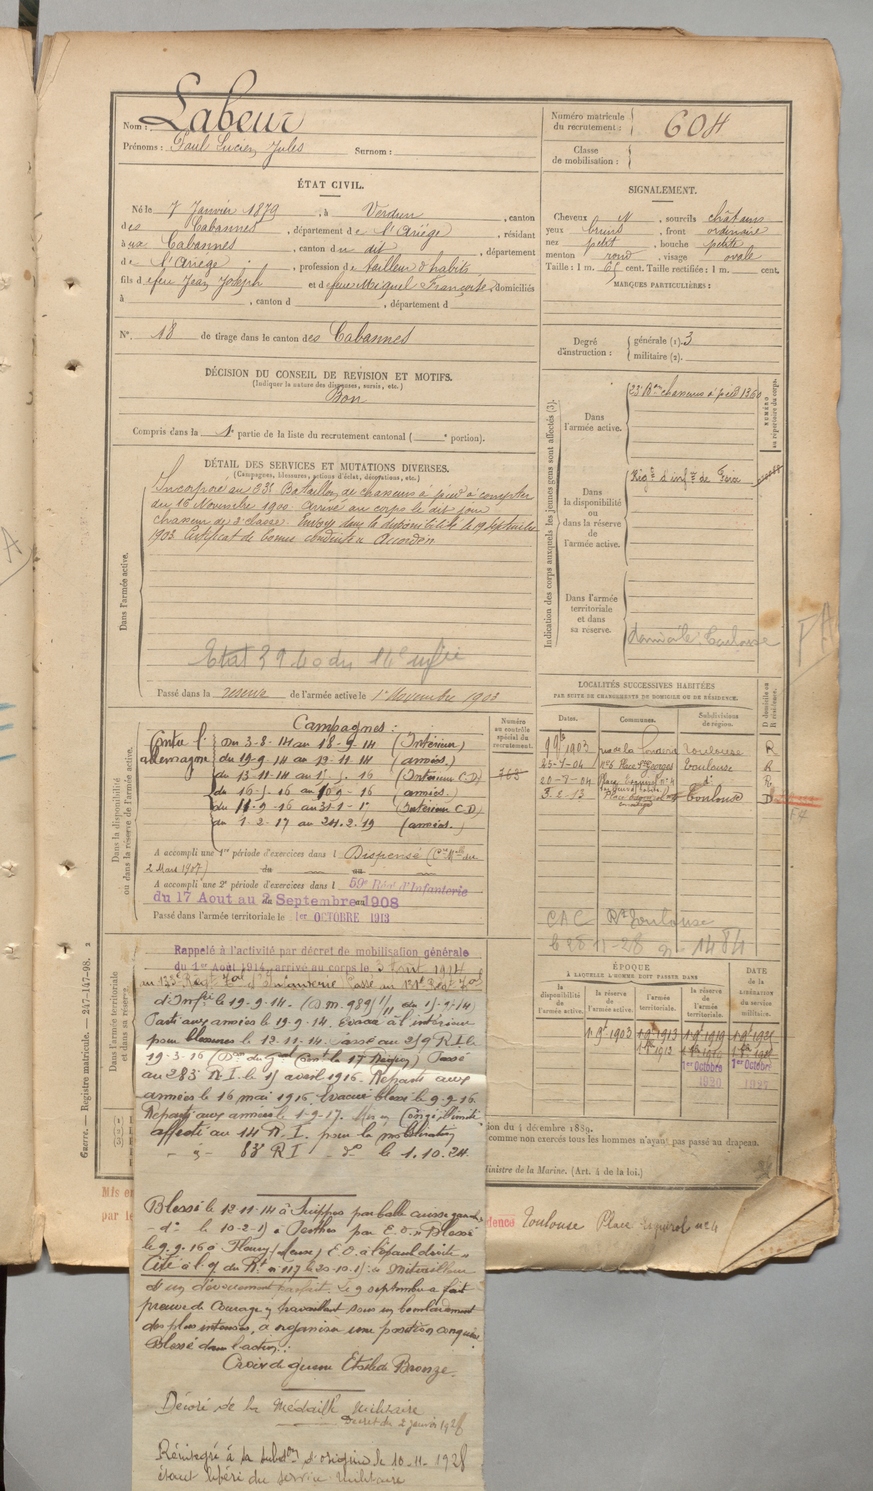 Nom : Labeur
Prénoms : Paul Lucien Jules Surnom :
Numéro matricule du recrutement : 604
Classe de mobilisation :
ÉTAT CIVIL.
Né le 7 Janvier 1879, à Verdun, canton
des Cabannes, département de l'Ariège, résidant
à aux Cabannes, canton du dit, département
de l'Ariège, profession de tailleur d'habits
fils de feu Jean Joseph et de feue Miquel Françoise, domiciliés
à , canton d , département d
N° 18 de tirage dans le canton des Cabannes
SIGNALEMENT.
Cheveux N , sourcils châtains
yeux bruns , front ordinaire
nez petit , bouche petite
menton rond , visage ovale
Taille : 1 m. 65 cent. Taille rectifiée : 1 m. cent.
MARQUES PARTICULIÈRES :
Degré d'instruction : générale (1). 3
militaire (2).
DÉCISION DU CONSEIL DE REVISION ET MOTIFS.
(Indiquer la nature des dispenses, sursis, etc.)
Bon
Compris dans la 1e partie de la liste du recrutement cantonal ( e portion).
DÉTAIL DES SERVICES ET MUTATIONS DIVERSES.
(Campagnes, blessures, actions d'éclat, décorations, etc.)
Dans l'armée active.
Incorporé au 23e Bataillon de chasseurs à pied à compter
du 16 Novembre 1900. Arrivé au corps le dit jour
chasseur de 2e classe. Envoyé dans la disponibilité le 19 Septembre
1903. Certificat de bonne conduite Accordé
Passé dans la réserve de l'armée active le 1er Novembre 1903
Indication des corps auxquels les jeunes gens sont affectés (3).
Dans l'armée active.
23e Bon chasseurs à pied 1360
NUMÉRO au répertoire du corps.
Dans la disponibilité ou dans la réserve de l'armée active.
Rég.t d'inf.ie de Foix
Dans l'armée territoriale et dans sa réserve.
domicile Toulouse
LOCALITÉS SUCCESSIVES HABITÉES
PAR SUITE DE CHANGEMENTS DE DOMICILE OU DE RÉSIDENCE.
Dates. Communes. Subdivisions de région. D domicile ou R résidence.
Toulouse R
25-4-04 Place St Georges Toulouse R
20-9-04 d° R
Toulouse D
C A C Rt Toulouse
1484
Dans la disponibilité ou dans la réserve de l'armée active.
Campagnes :
Contre l'allemagne
du 3-8-14 au 18-9-14 (Intérieur)
du 19-9-14 au 12-11-14 (armées.)
du 13-11-14 au 15-5-16 (Intérieur C.D)
du 16-5-16 au 10-9-16 (armées.)
du 11-9-16 au 31-1-17 (Intérieur C.D)
du 1-2-17 au 24-2-19 (armées.)
Numéro au contrôle spécial du recrutement.
A accompli une 1re période d'exercices dans l Dispensé
2 Mars 1907) du au
A accompli une 2e période d'exercices dans l 59e Rég d'Infanterie
du 17 Aout au 2 Septembre 1908
Passé dans l'armée territoriale le 1er OCTOBRE 1913
Dans l'armée territoriale et dans sa réserve.
ÉPOQUE
À LAQUELLE L'HOMME DOIT PASSER DANS
la disponibilité de l'armée active. la réserve de l'armée active. l'armée territoriale. la réserve de l'armée territoriale.
DATE DE LA LIBÉRATION du service militaire.
1er Octobre 1er Octobre
Rappelé à l'activité par décret de mobilisation générale
du 1er Aout 1914, arrivé au corps le 3 Aout 1914
au 133e Régt Tal d'Infanterie Passé au 131e Régt Tal
d'Infie le 19-9-14.
Parti aux armées le 19-9-14. Evacué à l'intérieur
pour blessures le 12-11-14. Passé au 259 R.I. le
19-3-16 Passé
au 283e R.I. le 15 avril 1916. Reparti aux
armées le 16 mai 1916. Evacué blessé le 9-9-16.
Reparti aux armées le 1-9-17. Mis en Congé illimité
affecté au 14 R.I. pour la mobilisation
- d° - 83e R I - d° le 1.10.24.
Blessé le 12-11-14 à Suippes par balle cuisse gauche
- d° le 10-2-15 à Perthes par E.O. Blessé
le 9-9-16 à Fleury (Meuse) E.O. à l'épaule droite
Cité à l'o. du Rt n° 117 le 20-10-16 : Mitrailleur
d'un dévouement parfait. Le 9 septembre a fait
preuve de courage en travaillant sous un bombardement
des plus intenses, à organiser une position conquise.
Blessé dans l'action.
Croix de guerre Etoile de Bronze.
Décoré de la Médaille militaire
Decret du 2 janvier 1928
Réintegré à la subdon d'origine le 10-11-1928
étant libéré du service militaire
ion du 4 décembre 1889.
comme non exercés tous les hommes n'ayant pas passé au drapeau.
Ministre de la Marine. (Art. 4 de la loi.)
dence Toulouse Place Riquet n° 4
Guerre. — Registre matricule. — 247-147-98.